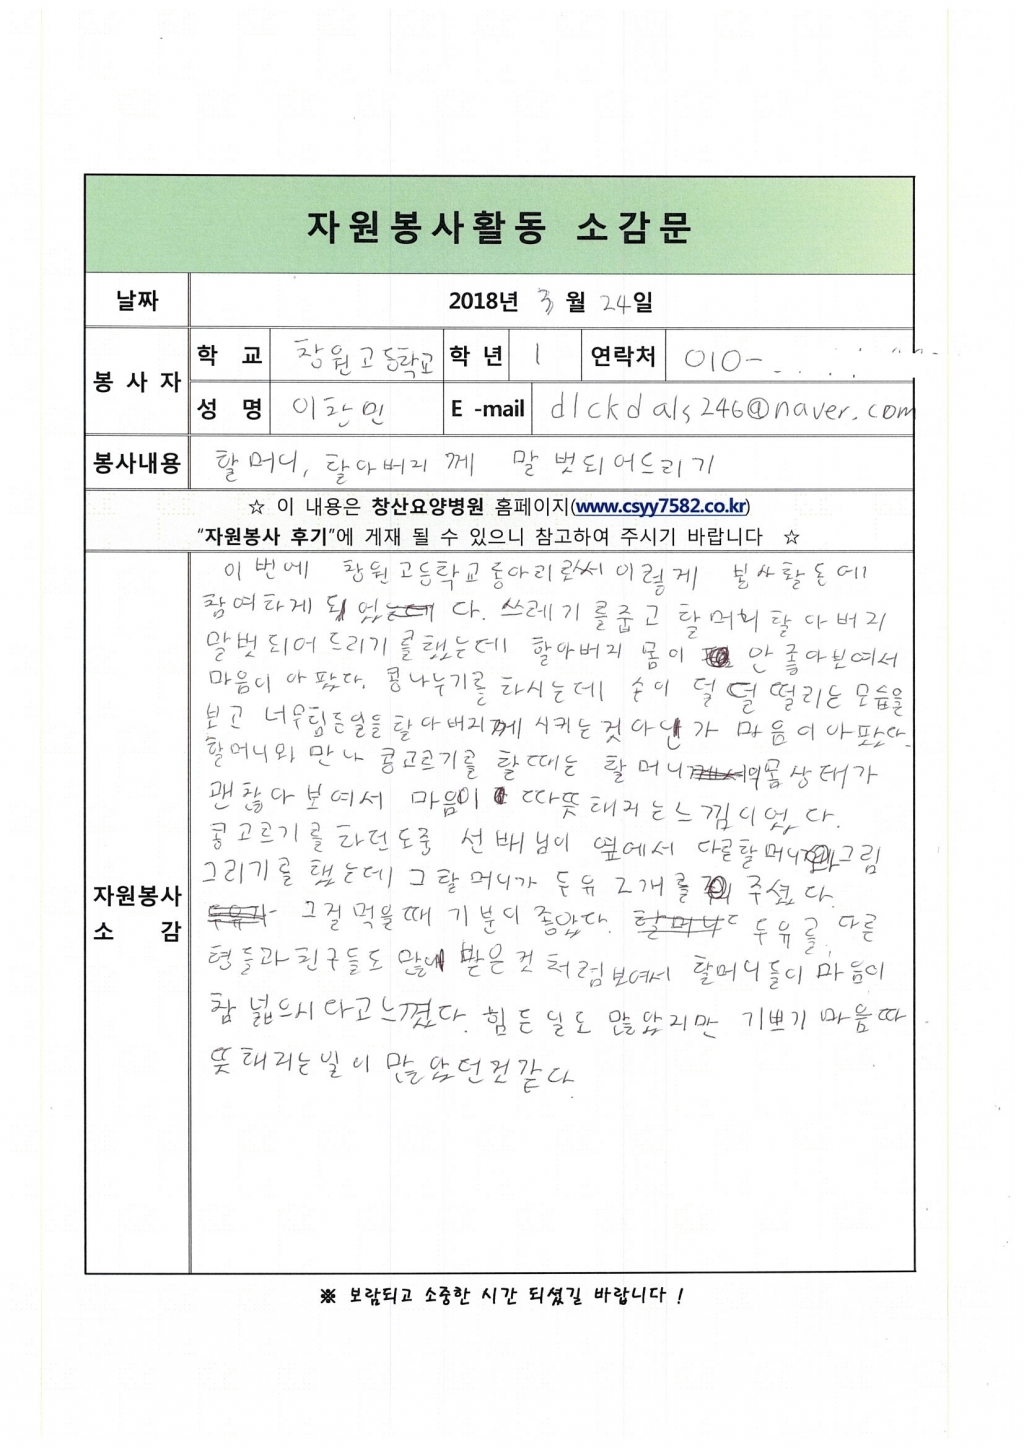 자원봉사활동 소감문
날짜 2018년 3월 24일
봉사자 학 교 창원고등학교 학 년 1 연락처 010-
성 명 이찬민 E -mail dlckdals246@naver.com
봉사내용 할머니, 할아버지 께 말벗되어드리기
☆ 이 내용은 창산요양병원 홈페이지(www.csyy7582.co.kr)
"자원봉사 후기"에 게재 될 수 있으니 참고하여 주시기 바랍니다 ☆
자원봉사 소 감
이번에 창원고등학교동아리로써 이렇게 봉사활동에
참여하게 되었다. 쓰레기를줍고 할머니 할아버지
말벗되어 드리기를했는데 할아버지 몸이 안좋아보여서
마음이 아팠다. 콩나누기를 하시는데 손이 덜 덜 떨리는 모습을
보고 너무힘든일을 할아버지께 시키는것아닌가 마음이아팠다.
할머니와 만나 콩고르기를 할때는 할머니 몸상태가
괜찮아 보여서 마음이 따뜻해지는느낌이었다.
콩고르기를 하던도중 선배님이 옆에서 다른할머니와그림
그리기를 했는데 그할머니가 두유 2개를 주셨다.
그걸먹을때 기분이좋았다. 두유를 다른
형들과친구들도 많이 받은것처럼보여서 할머니들이 마음이
참 넓으시다고느꼈다. 힘든일도 많았지만 기쁘기 마음따
뜻해지는일이 많았던것같다
※ 보람되고 소중한 시간 되셨길 바랍니다 !